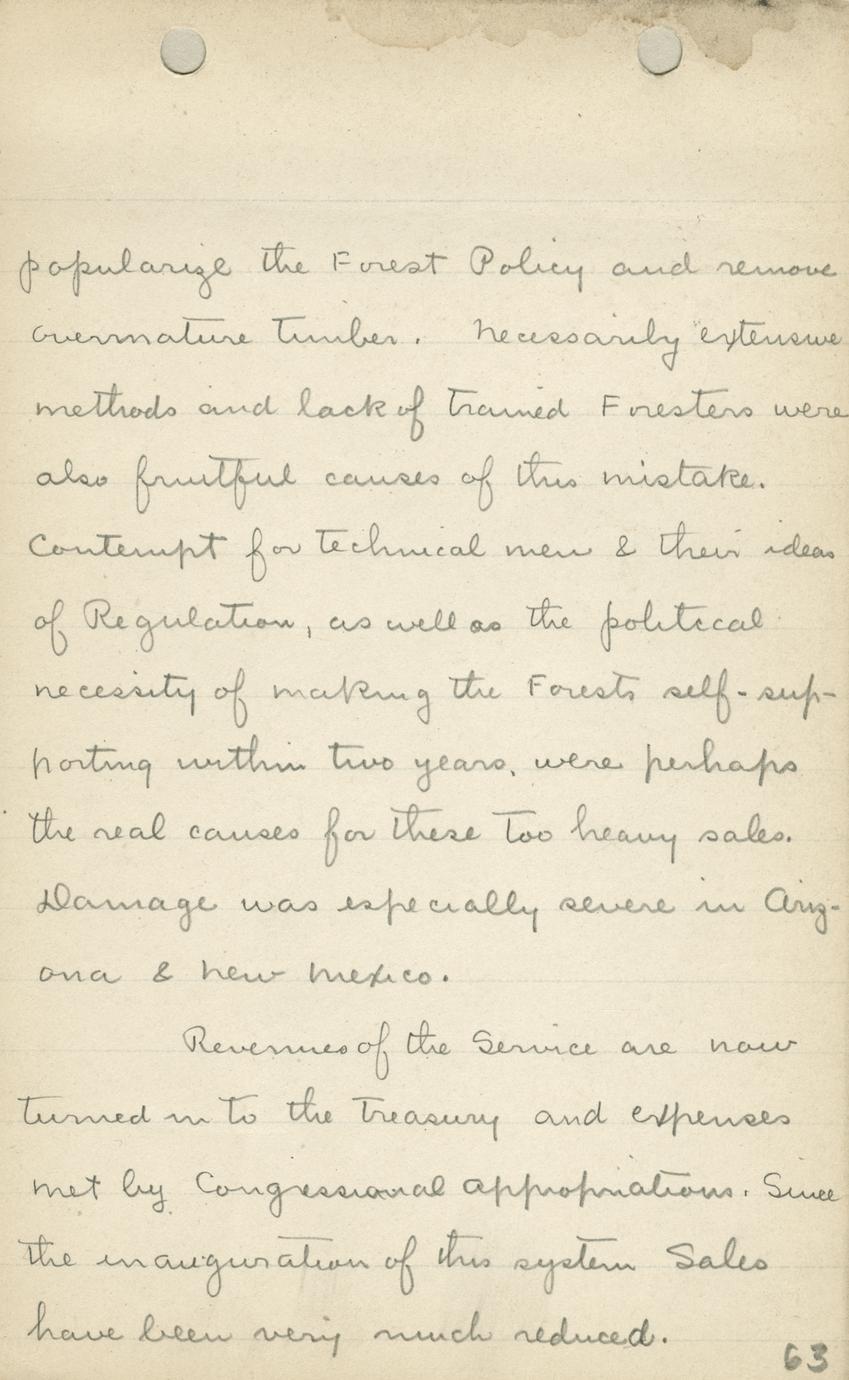 popularize the Forest Policy and remove
overmature timber. Necessarily extensive
methods and lack of trained Foresters were
also fruitful causes of this mistake.
Contempt for technical men & their ideas
of Regulation, as well as the political
necessity of making the Forests self-sup-
porting within two years, were perhaps
the real causes for these too heavy sales.
Damage was especially severe in Ariz-
ona & New Mexico.
Revenues of the Service are now
turned in to the Treasury and expenses
met by Congressional appropriations. Since
the inauguration of this system Sales
have been very much reduced.
63